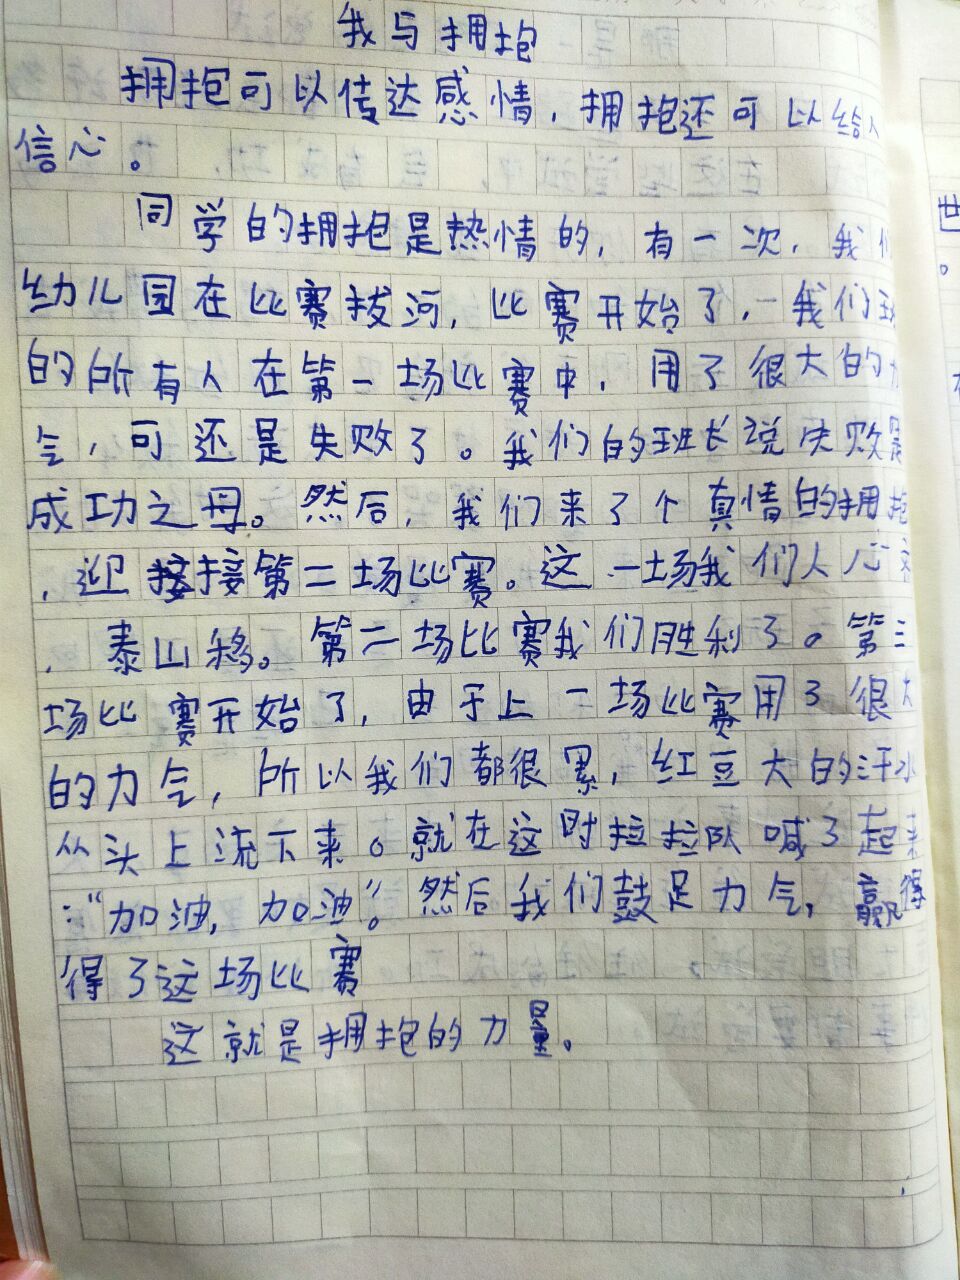 我与拥抱
拥抱可以传达感情，拥抱还可以给人
信心。
同学的拥抱是热情的，有一次，我们
幼儿园在比赛拔河，比赛开始了，我们班
的所有人在第一场比赛中，用了很大的力
气，可还是失败了。我们的班长说失败是
成功之母。然后，我们来了个真情的拥抱
，迎接接第二场比赛。这一场我们人心齐
，泰山移。第二场比赛我们胜利了。第三
场比赛开始了，由于上一场比赛用了很大
的力气，所以我们都很累，红豆大的汗水
从头上流下来。就在这时拉拉队喊了起来
：“加油，加油”。然后我们鼓足力气，赢得
得了这场比赛
这就是拥抱的力量。
世
。